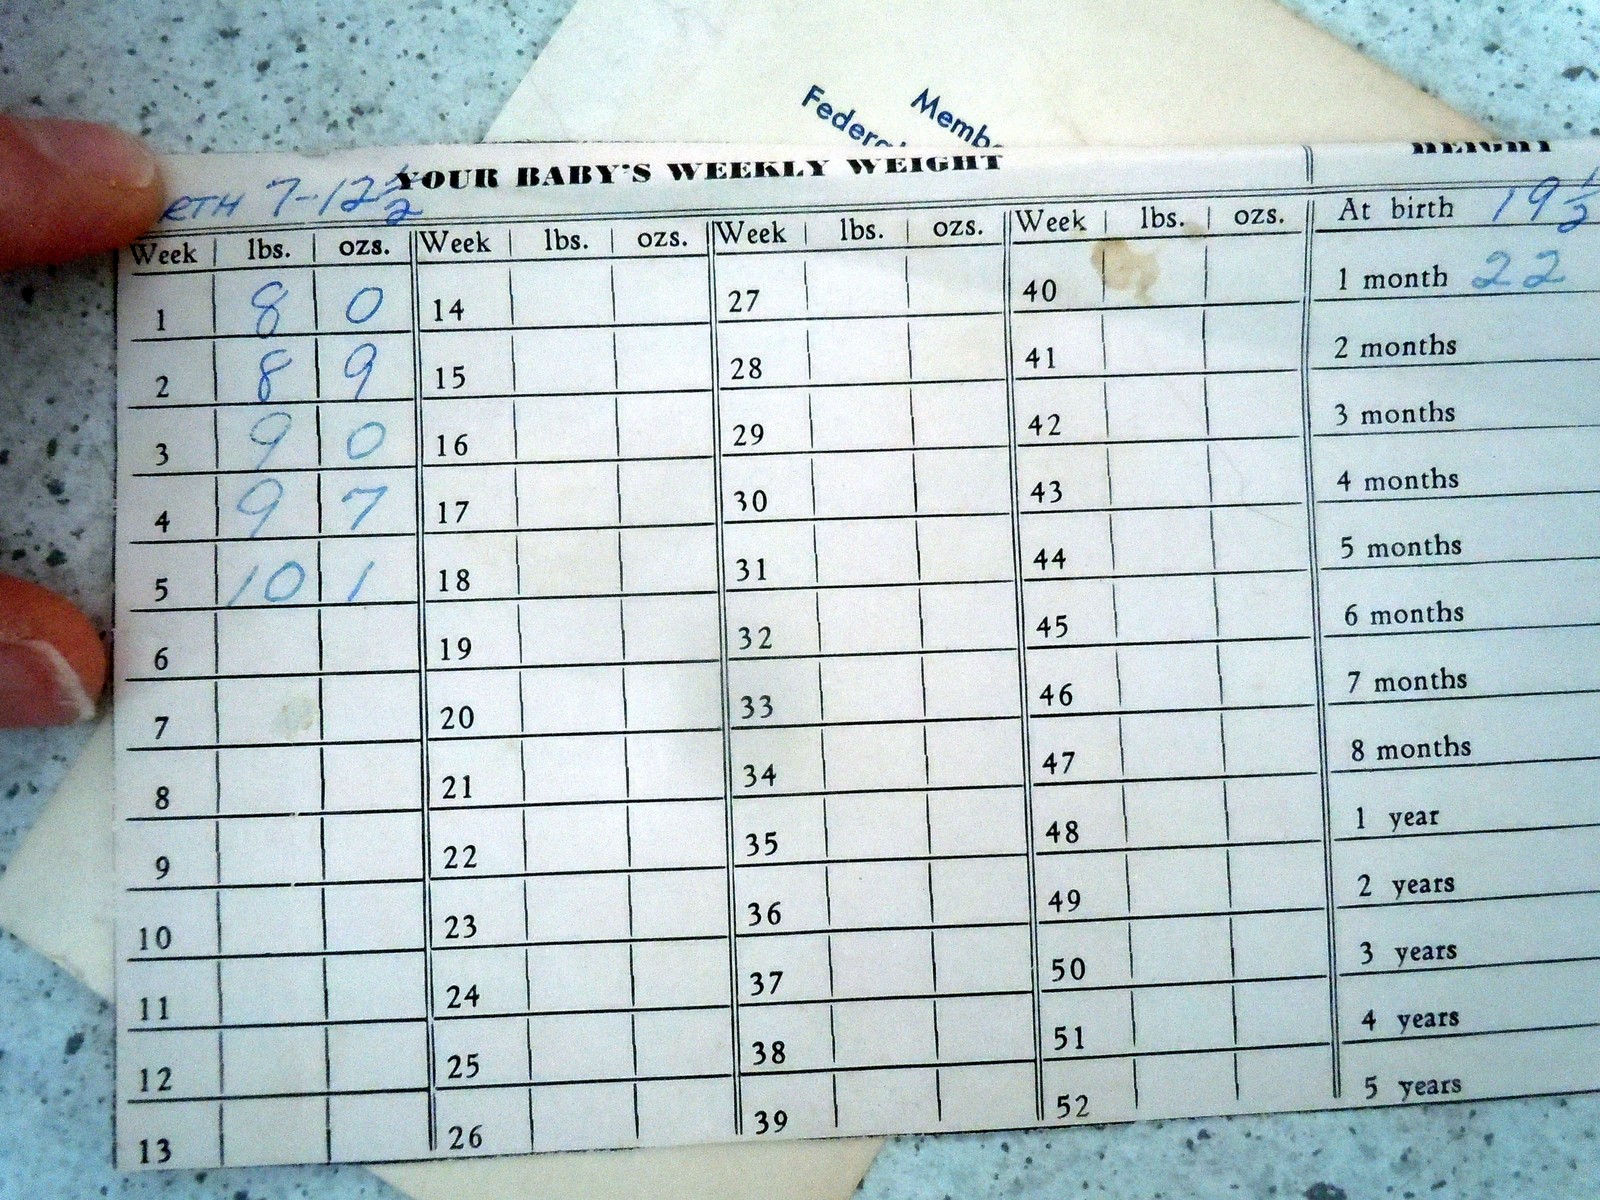 Memb
Federa
YOUR BABY'S WEEKLY WEIGHT HEIGHT
RTH 7-12 1/2
Week lbs. ozs. Week lbs. ozs. Week lbs. ozs. Week lbs. ozs. At birth 19 1/2
1 8 0 14 27 40 1 month 22
2 8 9 15 28 41 2 months
3 9 0 16 29 42 3 months
4 9 7 17 30 43 4 months
5 10 1 18 31 44 5 months
6 19 32 45 6 months
7 20 33 46 7 months
8 21 34 47 8 months
9 22 35 48 1 year
10 23 36 49 2 years
11 24 37 50 3 years
12 25 38 51 4 years
13 26 39 52 5 years